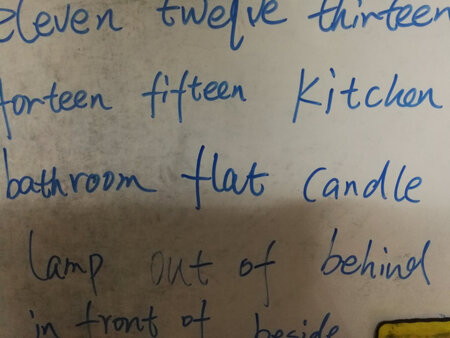 eleven twelve thirteen
forteen fifteen kitchen
bathroom flat candle
lamp out of behind
in front of beside